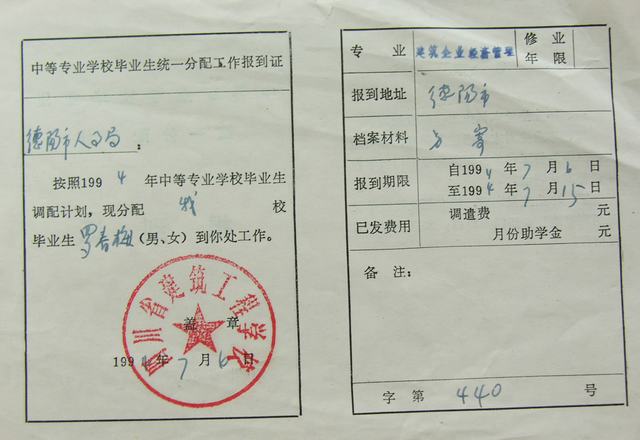 中等专业学校毕业生统一分配工作报到证
德阳市人事局：
按照1994年中等专业学校毕业生
调配计划，现分配 我 校
毕业生罗春梅（男、女）到你处工作。
四川省建筑工程学校
盖 章
1994年7月6日
专 业 建筑企业经济管理 修业年限
报到地址 德阳市
档案材料 另寄
报到期限 自1994年7月6日
至1994年7月15日
已发费用 调遣费 元
月份助学金 元
备 注：
字 第 440 号